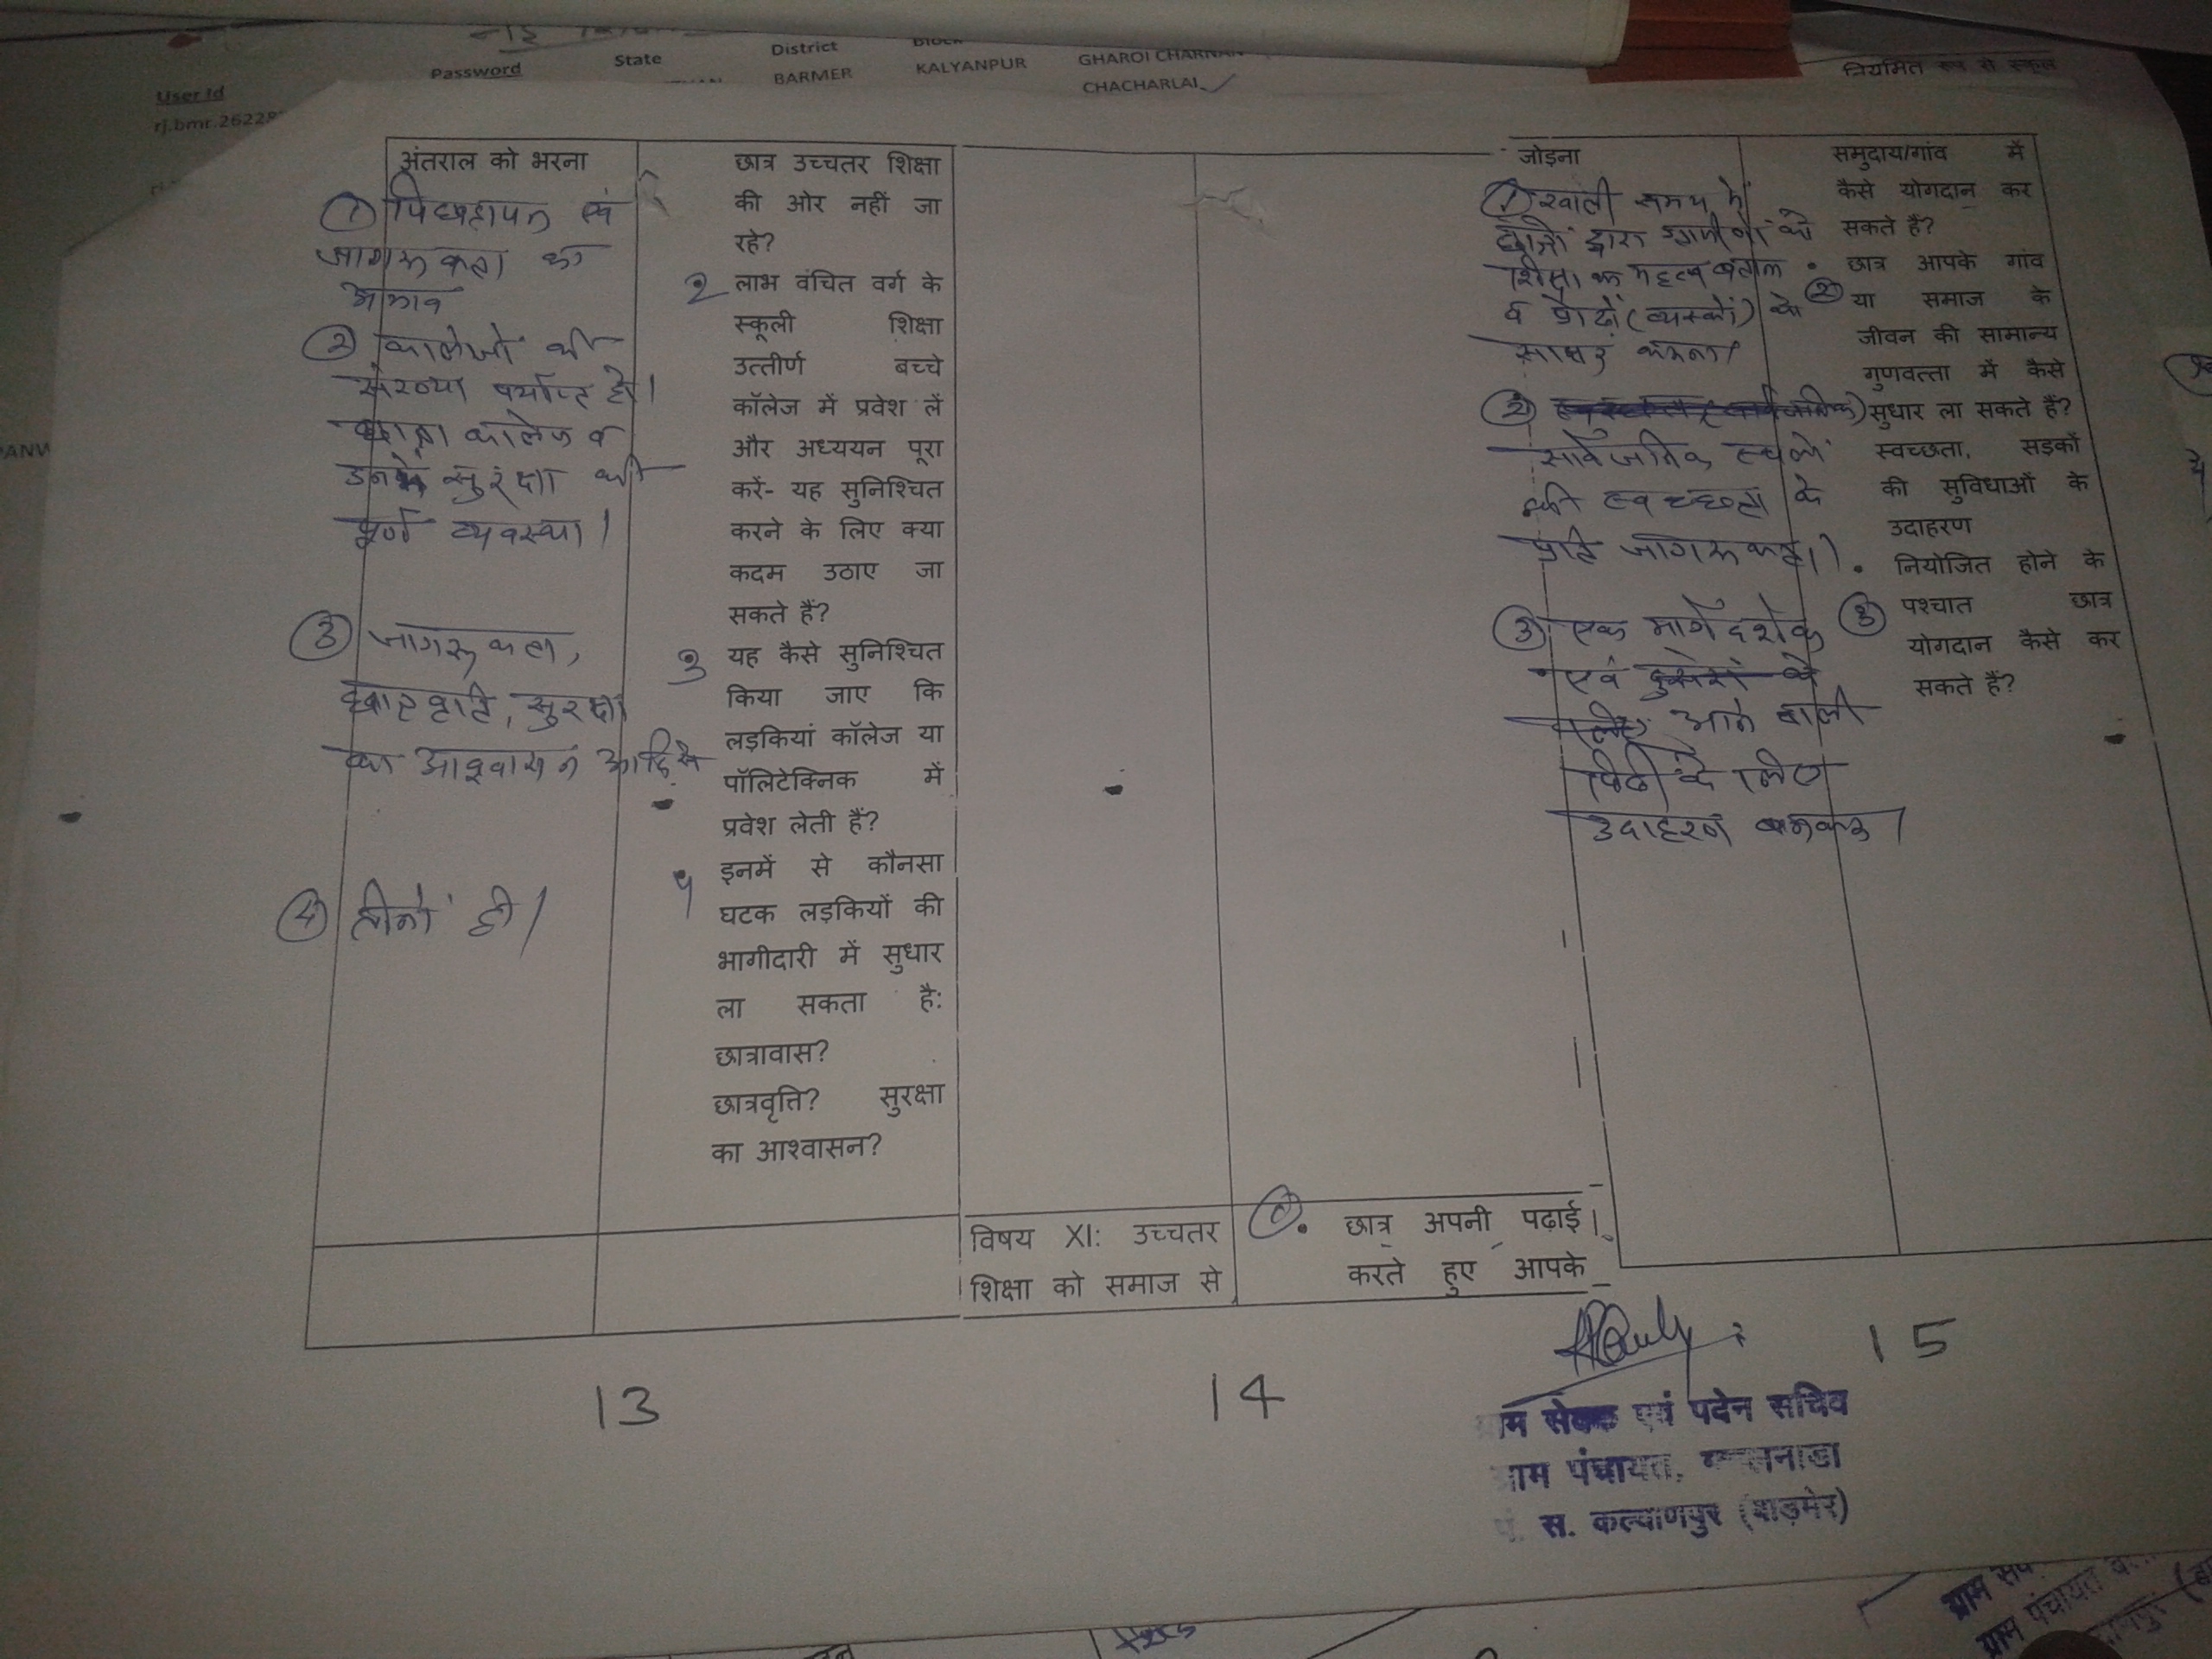 User Id
rj.bmr.26228
Password
State
District
BARMER
KALYANPUR
GHAROI CHARNAN
CHACHARLAI
नियमित रूप से स्कूल
अंतराल को भरना
① पिछड़ापन एवं
जागरूकता का
अभाव
② कालेजों की
संख्या पर्याप्त हो।
छात्रा कालेज व
उनके सुरक्षा की
पूर्ण व्यवस्था।
③ जागरूकता,
छात्रवृति, सुरक्षा
का आश्वासन आदि से
④ तीनों ही।
छात्र उच्चतर शिक्षा
की ओर नहीं जा
रहे?
2 लाभ वंचित वर्ग के
स्कूली शिक्षा
उत्तीर्ण बच्चे
कॉलेज में प्रवेश लें
और अध्ययन पूरा
करें- यह सुनिश्चित
करने के लिए क्या
कदम उठाए जा
सकते हैं?
3 यह कैसे सुनिश्चित
किया जाए कि
लड़कियां कॉलेज या
पॉलिटेक्निक में
प्रवेश लेती हैं?
4 इनमें से कौनसा
घटक लड़कियों की
भागीदारी में सुधार
ला सकता है:
छात्रावास?
छात्रवृत्ति? सुरक्षा
का आश्वासन?
विषय XI: उच्चतर
शिक्षा को समाज से
• छात्र अपनी पढ़ाई
करते हुए आपके
जोड़ना
① खाली समय में
छात्रों द्वारा ग्रामीणों को
शिक्षा का महत्व बताना
व प्रौढों (व्यस्कों) को
साक्षर करना।
②
सार्वजनिक स्थलों
की स्वच्छता के
प्रति जागरूकता।
③ एक मार्गदर्शक
एवं दुसरों के
लिए आने वाली
पिढी के लिए
उदाहरण बनकर।
समुदाय/गांव में
कैसे योगदान कर
सकते हैं?
• छात्र आपके गांव
② या समाज के
जीवन की सामान्य
गुणवत्ता में कैसे
सुधार ला सकते हैं?
स्वच्छता, सड़कों
की सुविधाओं के
उदाहरण
• नियोजित होने के
③ पश्चात छात्र
योगदान कैसे कर
सकते हैं?
13
14
15
ग्राम सेवक एवं पदेन सचिव
ग्राम पंचायत,
पं. स. कल्याणपुर (बाड़मेर)
ग्राम पंचायत